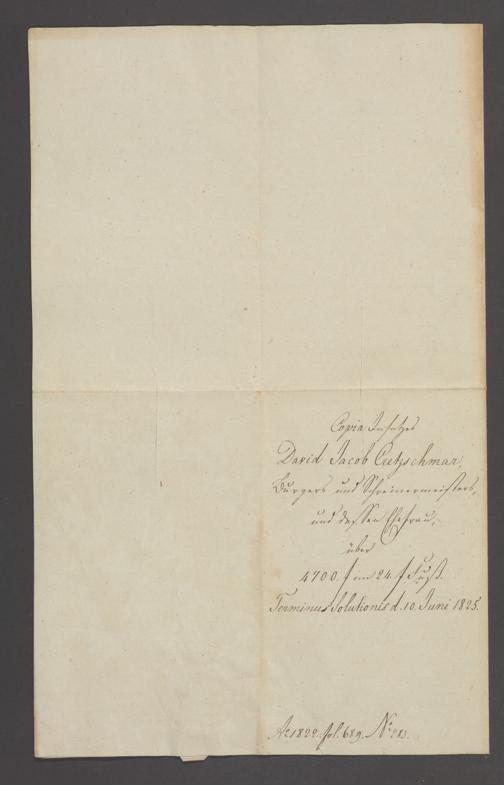 Copia Insatzes
David Jacob Cretzschmar,
Burgers und Schreinermeisters,
und dessen Ehefrau,
über
4700. f im 24. f Fuß.
Terminus Solutionis d. 10. Juni 1825.
Ao 1822. fol. 689. No 283.